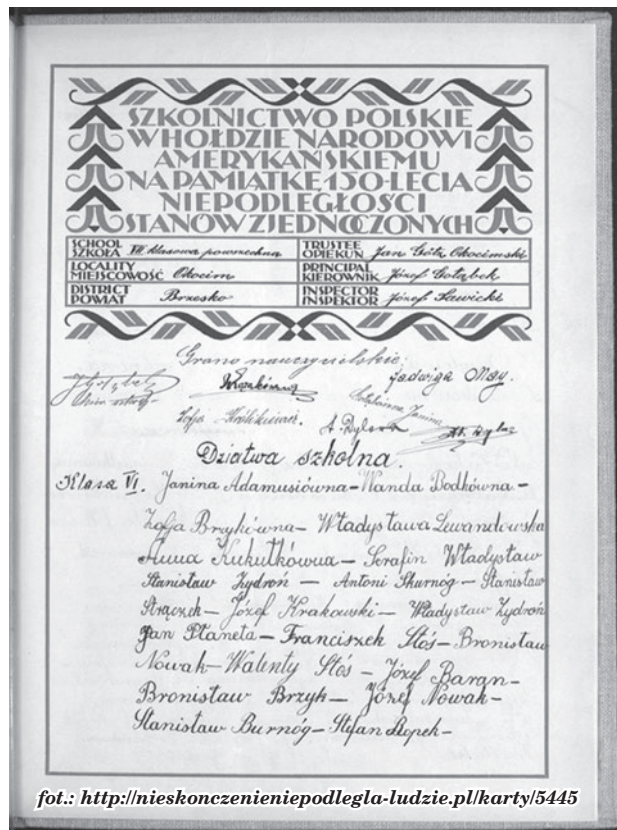 SZKOLNICTWO POLSKIE
W HOŁDZIE NARODOWI
AMERYKAŃSKIEMU
NA PAMIĄTKĘ 150-LECIA
NIEPODLEGŁOŚCI
STANÓW ZJEDNOCZONYCH
SCHOOL
SZKOŁA VII klasowa powszechna
LOCALITY
MIEJSCOWOŚĆ Okocim
DISTRICT
POWIAT Brzesko
TRUSTEE
OPIEKUN Jan Götz Okocimski
PRINCIPAL
KIEROWNIK Józef Gołąbek
INSPECTOR
INSPEKTOR Józef Sawicki
Grono nauczycielskie:
Jadwiga May.
Zofja
A. Dylowa
Dziatwa szkolna.
Klasa VI. Janina Adamusiówna – Wanda Bodkówna –
Zofja Brzykówna – Władysława Lewandowska
Anna Kukułkówna – Serafin Władysław
Stanisław Żydroń – Antoni Skurnóg – Stanisław
Strączek – Józef Krakowski – Władysław Żydroń
Jan Płaneta – Franciszek Stós – Bronisław
Nowak – Walenty Stós – Józef Baran –
Bronisław Brzyk – Józef Nowak –
Stanisław Burnóg – Stefan Ropek –
fot.: http://nieskonczenieniepodlegla-ludzie.pl/karty/5445